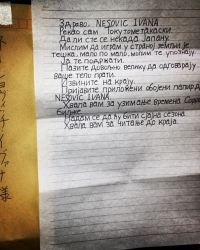 Здраво, NESOVIC IVANA
Рекао сам Токутоме такаски.
Да ли сте се некада Јапану.
Мислим да играм у страној земљи је
тешка, мало по мало, молим те упознају
Ја те подржати.
Пазите довољно велику да одговарају
ваше тело прати.
Извините на крају.
Пријавите приложени обојени папир
NESOVIC IVANA.
Хвала вам за узимање времена
Надам се да ћу бити сјајна сезона.
Хвала вам за читање до краја.
イヴァナ様